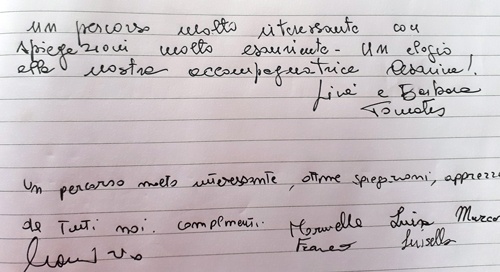 un percorso molto interessante con
spiegazioni molto esaurienti - Un elogio
alla nostra accompagnatrice
e Barbara
Un percorso molto interessante, ottime spiegazioni, apprezz
da tutti noi. complimenti. Luisa Marco
Franco Luisella